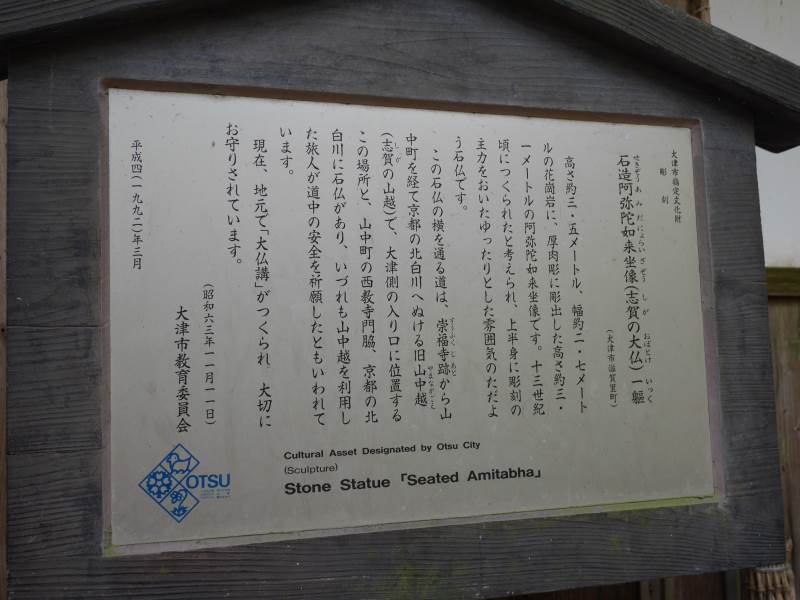 大津市指定文化財
彫刻
石造阿弥陀如来坐像(志賀の大仏)一軀
せきぞうあみだにょらいざぞう しが おぼとけ いっく
(大津市滋賀里町)
高さ約三・五メートル、幅約二・七メート
ルの花崗岩に、厚肉彫に彫出した高さ約三・
一メートルの阿弥陀如来坐像です。十三世紀
頃につくられたと考えられ、上半身に彫刻の
主力をおいたゆったりとした雰囲気のただよ
う石仏です。
この石仏の横を通る道は、崇福寺跡から山
すうふくじあと
中町を経て京都の北白川へぬける旧山中越
やまなかごえ
(志賀の山越)で、大津側の入り口に位置する
しが
この場所と、山中町の西教寺門脇、京都の北
白川に石仏があり、いづれも山中越を利用し
た旅人が道中の安全を祈願したともいわれて
います。
現在、地元で「大仏講」がつくられ、大切に
お守りされています。
(昭和六三年一一月一一日)
大津市教育委員会
平成四(一九九二)年三月
Cultural Asset Designated by Otsu City
(Sculpture)
Stone Statue「Seated Amitabha」
OTSU